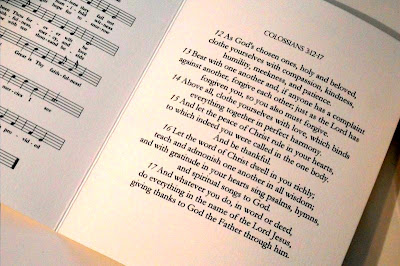 deserves it and love
Great is Thy faithfulness!
merci es I see
pro vid ed
COLOSSIANS 3:12-17
12 As God's chosen ones, holy and beloved,
clothe yourselves with compassion, kindness,
humility, meekness, and patience.
13 Bear with one another and, if anyone has a complaint
against another, forgive each other; just as the Lord has
forgiven you, so you also must forgive.
14 Above all, clothe yourselves with love, which binds
everything together in perfect harmony.
15 And let the peace of Christ rule in your hearts,
to which indeed you were called in the one body.
And be thankful.
16 Let the word of Christ dwell in you richly;
teach and admonish one another in all wisdom;
and with gratitude in your hearts sing psalms, hymns,
and spiritual songs to God.
17 And whatever you do, in word or deed,
do everything in the name of the Lord Jesus,
giving thanks to God the Father through him.